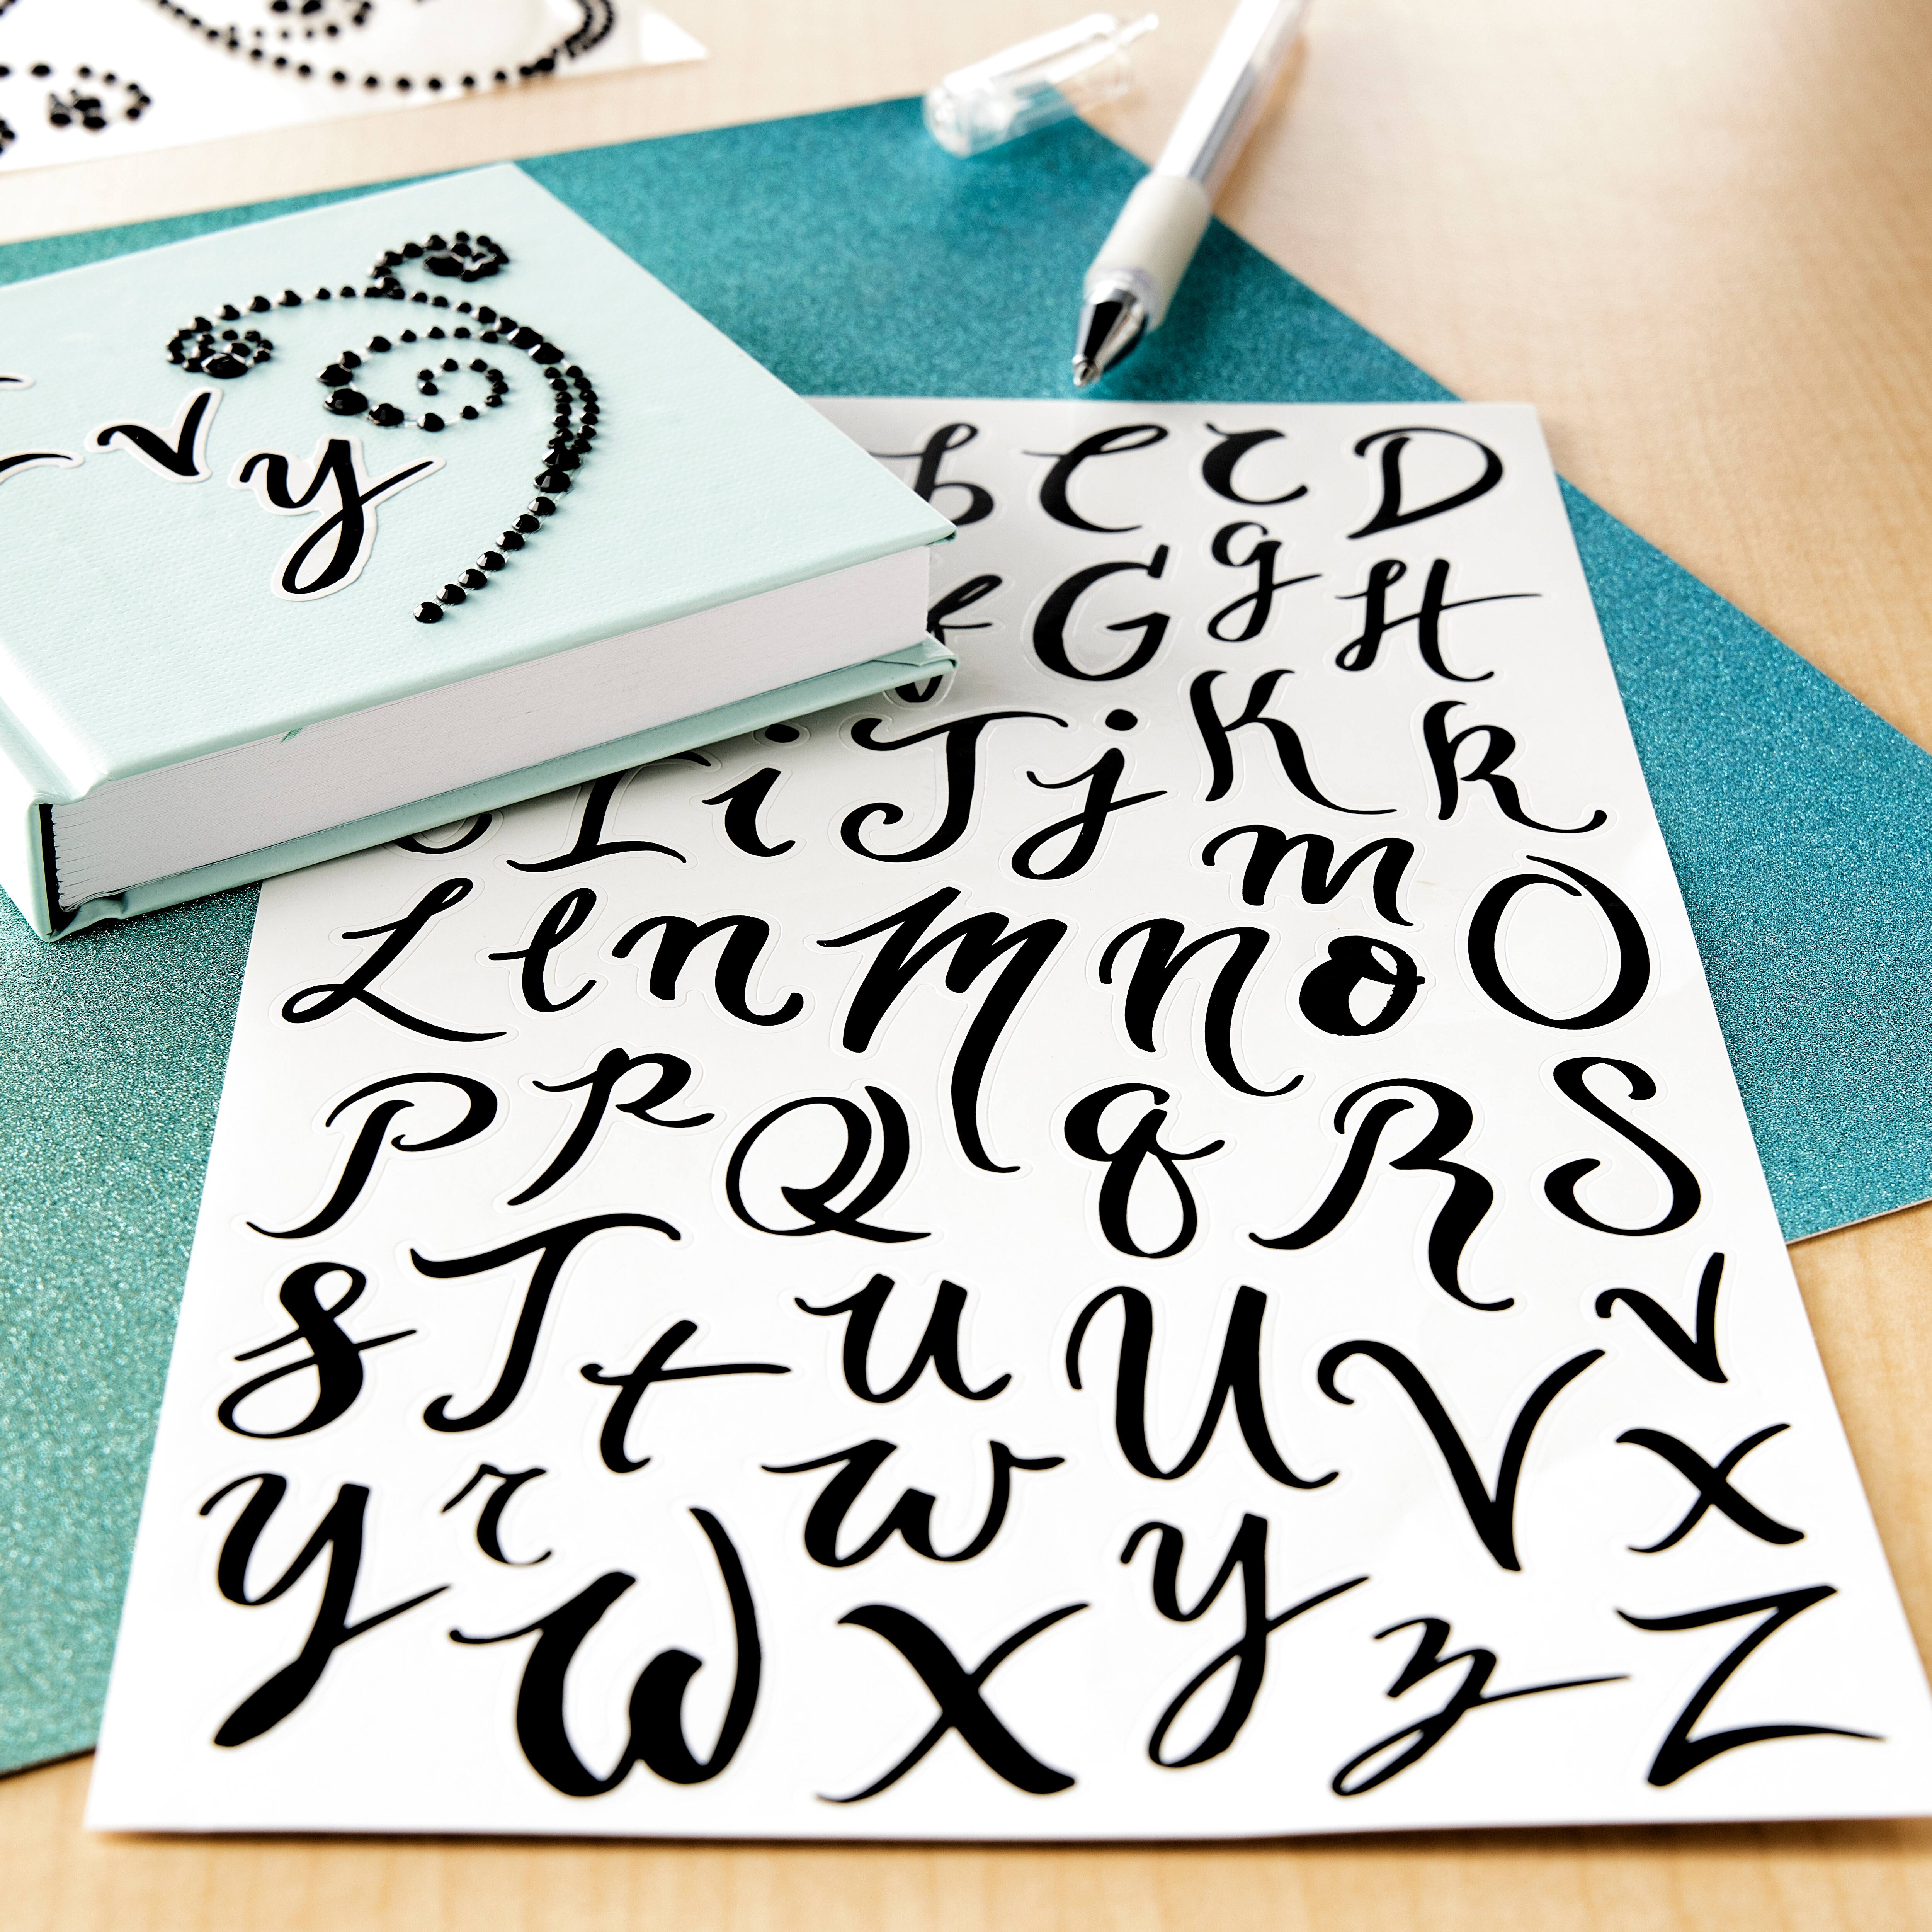 v y
b C c D
f G g H
I i J j K k
L l n M N m o O
P p Q q R S
s T t u U V v
y r w W X y z Z x